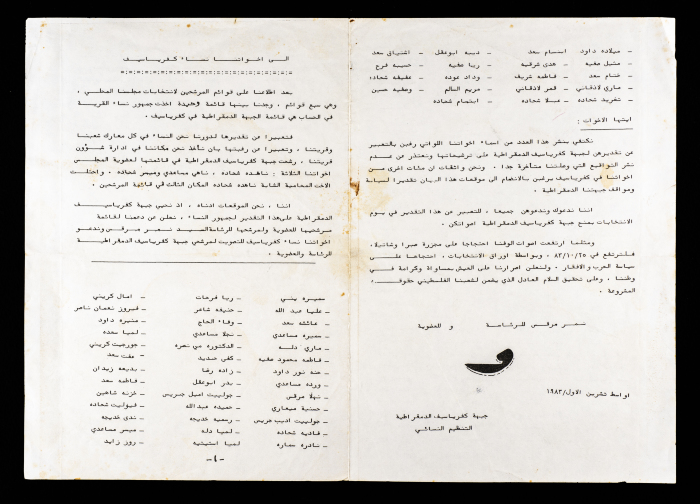 الى اخواتنا نساء كفرياسيف
بعد اطلاعنا على قوائم المرشحين لانتخابات مجلسنا المحلي ،
وهي سبع قوائم ، وجدنا بينها قائمة وحيدة اخذت جمهور نساء القرية
في الحساب هي قائمة الجبهة الدمقراطية في كفرياسيف .
فتعبيرا عن تقديرها لدورنا نحن النساء في كل معارك شعبنا
وقريتنا ، وتعبيرا عن رغبتها بان نأخذ نحن مكاننا في ادارة شؤون
قريتنا ، رشحت جبهة كفرياسيف الدمقراطية في قائمتها لعضوية المجلس
اخواتنا الثلاثة : ناهده شحاده ، ناهي مساعدي وميسر شحاده . واحتلت
الاخت المحامية الشابة ناهده شحاده المكان الثالث في قائمة المرشحين .
اننا ، نحن الموقعات ادناه ، اذ نحيي جبهة كفرياسيف
الدمقراطية على هذا التقدير لجمهور النساء ، نعلن عن دعمنا لقائمة
مرشحيها للعضوية ولمرشحها للرئاسة السيد نمر مرقس وندعو
اخواتنا نساء كفرياسيف للتصويت لمرشحي جبهة كفرياسيف الدمقراطية
للرئاسة والعضوية .
سميره يني – ربا فرحات – امال كريني
– عليا عبد الله – حنيفه شاعر – فيروز نعمان ناصر
– عائشه سعد – وفاء الحاج – منيره داود
– سميره مساعدي – نجلا مساعدي – لميا سعده
– ماري دله – الدكتوره مي نصره – جورجيت كريني
– فاطمه محمود عفيه – كفى حديد – عفت سعد
– هنه نور داود – زاده رضا – بديعه زيدان
– ورده مساعدي – بدر ابوعقل – فاطمه سعد
– نهلا مرقس – جولييت اميل جريس – خزنه شاهين
– حسنية ميعاري – حميده عبدالله – فيوليت شحاده
– جولييت اديب جريس – رسميه خديجه – ندى خديجه
– فاديه شحاده – لميا دله – ميسر مساعدي
– نادره سماره – لميا استيتيه – روز زايد
-١-
– ميلاده داود – ابتسام سعد – ديبه ابوعقل – اشتياق سعد
– منيل عفيه – هدى شرقيه – ربا عفيه – حسيبه فرح
– ختام سعد – فاطمه شريف – وداد عوده – عفيفه شحاده
– ماري لاذقاني – قمر لاذقاني – مريم السالم – وعفيه حسين
– تغريد شحاده – عبلا شحاده – ابتسام شحاده
ايتها الاخوات :
نكتفي بنشر هذا العدد من اسماء اخواتنا اللواتي رغبن بالتعبير
عن تقديرهن لجبهة كفرياسيف الدمقراطية على ترشيحاتها ونعتذر عن عدم
نشر التواقيع التي وصلتنا متأخرة جدا . ونحن واثقات ان مئات اخرى من
اخواتنا في كفرياسيف يرغبن بالانضمام الى موقعات هذا البيان تقديرا لسياسة
ومواقف جبهتنا الدمقراطية .
اننا ندعوك وندعوهن جميعا ، للتعبير عن هذا التقدير في يوم
الانتخابات بمنح جبهة كفرياسيف الدمقراطية اصواتكن .
ومثلما ارتفعت اصوات الوفنا احتجاجا على مجزرة صبرا وشاتيلا ،
فلترتفع في ٨٣/١٠/٢٥ ، وبواسطة اوراق الانتخابات ، احتجاجا على
سياسة الحرب والافقار . ولنعلن اصرارنا على العيش بمساواة وكرامة في
وطننا ، وعلى تحقيق السلام العادل الذي يضمن لشعبنا الفلسطيني حقوقه
المشروعة .
نمر مرقس للرئاسة و للعضوية
و
اواسط تشرين الاول/١٩٨٣
جبهة كفرياسيف الدمقراطية
التنظيم النسائي